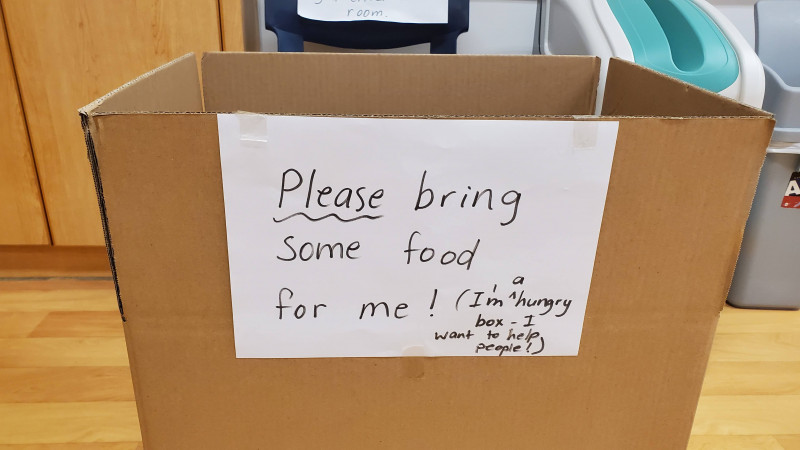 room.
Please bring
some food
for me! (I'm a hungry
box - I
want to help
people!)
A